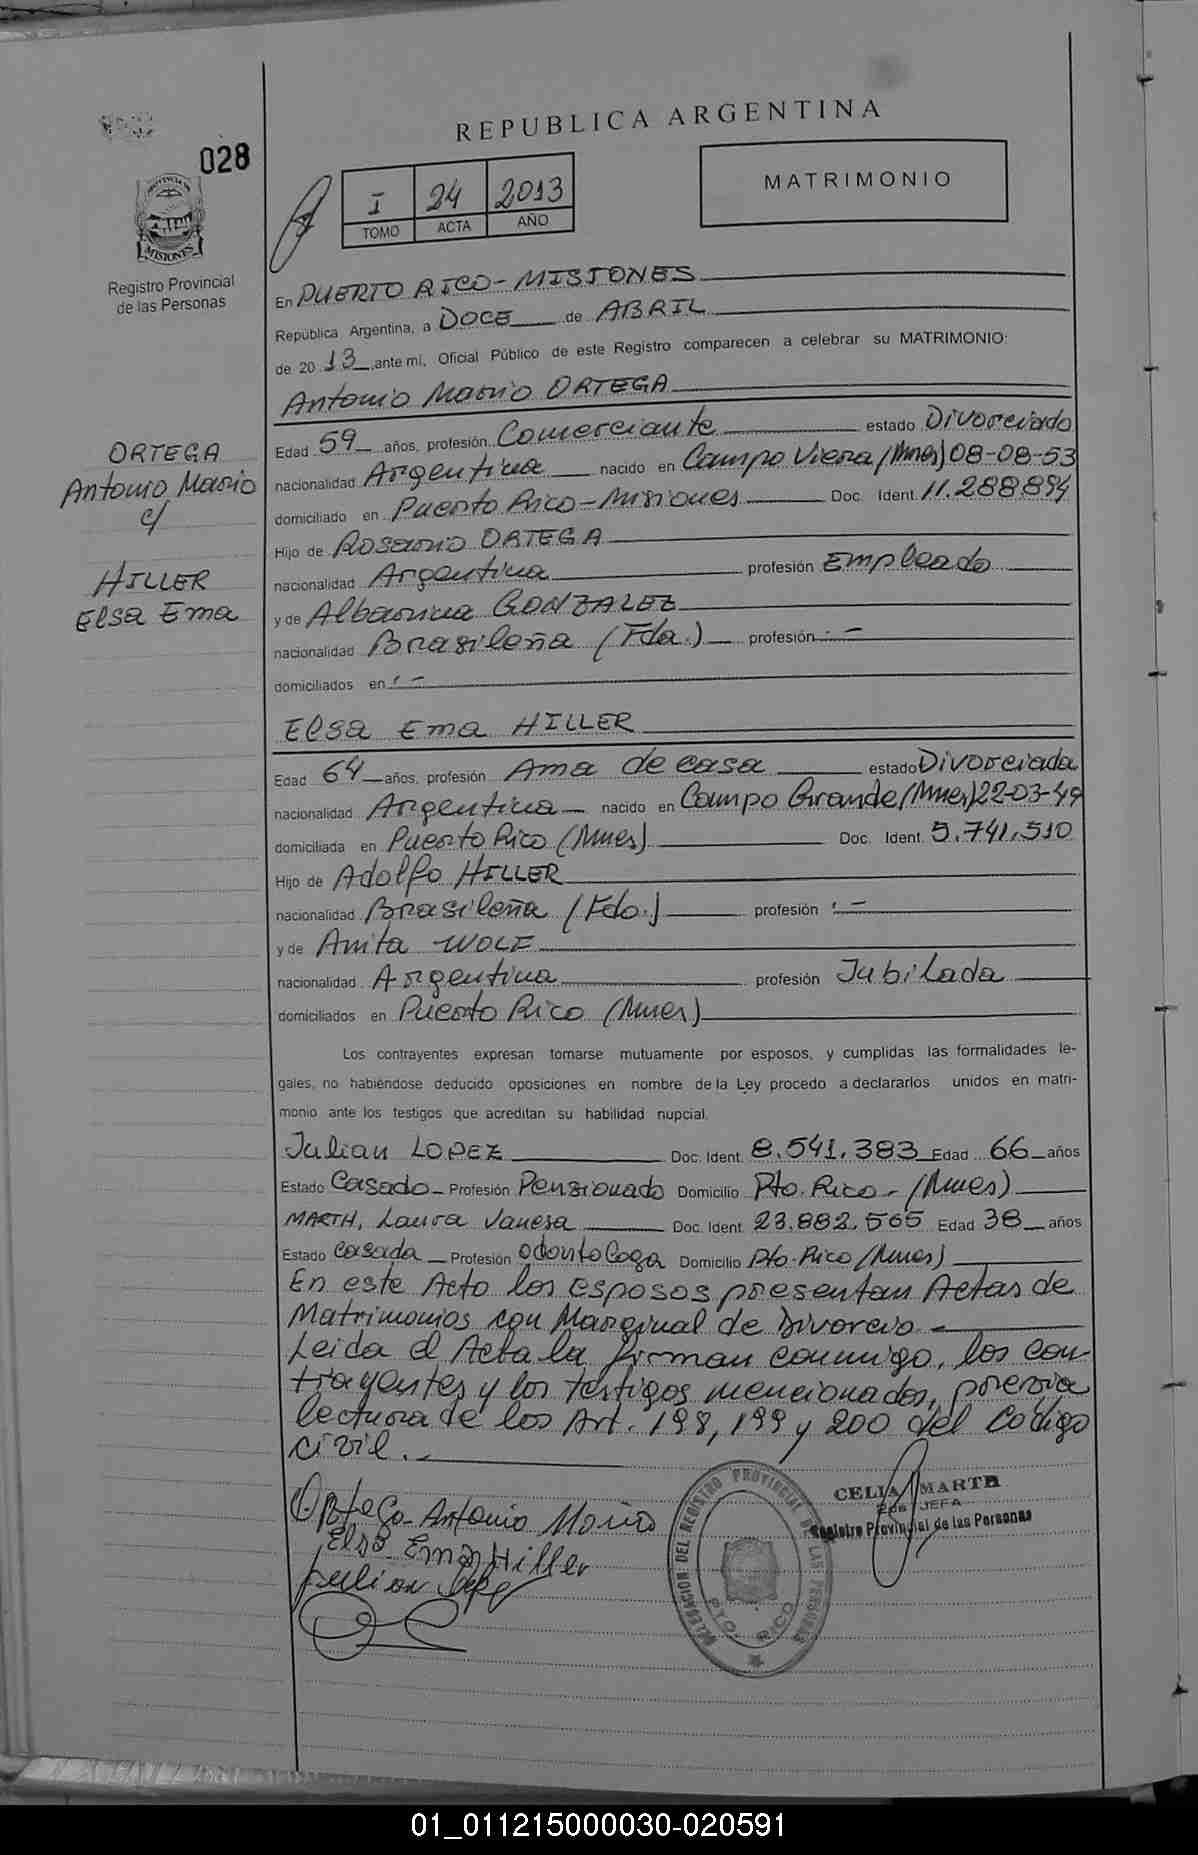 REPUBLICA ARGENTINA
028
I 24 2013
TOMO ACTA AÑO
MATRIMONIO
PROVINCIA DE
MISIONES
Registro Provincial
de las Personas
En PUERTO RICO - MISIONES
República Argentina, a DOCE de ABRIL
de 2013, ante mí, Oficial Público de este Registro comparecen a celebrar su MATRIMONIO:
Antonio Mario ORTEGA
ORTEGA
Antonio Mario
c/
HILLER
Elsa Ema
Edad 59 años, profesión Comerciante estado Divorciado
nacionalidad Argentina nacido en Campo Viera (Mnes) 08-08-53
domiciliado en Puerto Rico - Misiones Doc. Ident. 11.288.894
Hijo de Rosario ORTEGA
nacionalidad Argentina profesión Empleado
y de Albarina GONZALEZ
nacionalidad Brasileña (Fda.) profesión . -
domiciliados en . -
Elsa Ema HILLER
Edad 64 años, profesión Ama de casa estado Divorciada
nacionalidad Argentina nacido en Campo Grande (Mnes) 22-03-49
domiciliada en Puerto Rico (Mnes) Doc. Ident. 5.741.510
Hijo de Adolfo HILLER
nacionalidad Brasileña (Fdo.) profesión . -
y de Anita WOLF
nacionalidad Argentina profesión Jubilada
domiciliados en Puerto Rico (Mnes)
Los contrayentes expresan tomarse mutuamente por esposos, y cumplidas las formalidades le-
gales, no habiéndose deducido oposiciones en nombre de la Ley procedo a declararlos unidos en matri-
monio ante los testigos que acreditan su habilidad nupcial.
Julian LOPEZ Doc. Ident. 8.541.383 Edad 66 años
Estado Casado - Profesión Pensionado Domicilio Pto. Rico - (Mnes)
MARTH, Laura Vanesa Doc. Ident. 23.882.565 Edad 38 años
Estado Casada Profesión Odontologa Domicilio Pto. Rico (Mnes)
En este Acto los esposos presentan Actas de
Matrimonios con Marginal de Divorcio. -
Leida el Acta la firman conmigo, los con-
trayentes y los testigos mencionados, previa
lectura de los Art. 198, 199 y 200 del Codigo
Civil. -
Ortega Antonio Mario
Elsa Ema Hiller
Julian Lopez
DELEGACION DEL REGISTRO PROVINCIAL DE LAS PERSONAS
PTO. RICO
CELIA MARTH
JEFA
Registro Provincial de las Personas
01_011215000030-020591